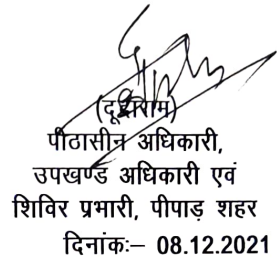 पीठासीन अधिकारी,
उपखण्ड अधिकारी एवं
शिविर प्रभारी, पीपाड़ शहर
दिनांकः– 08.12.2021